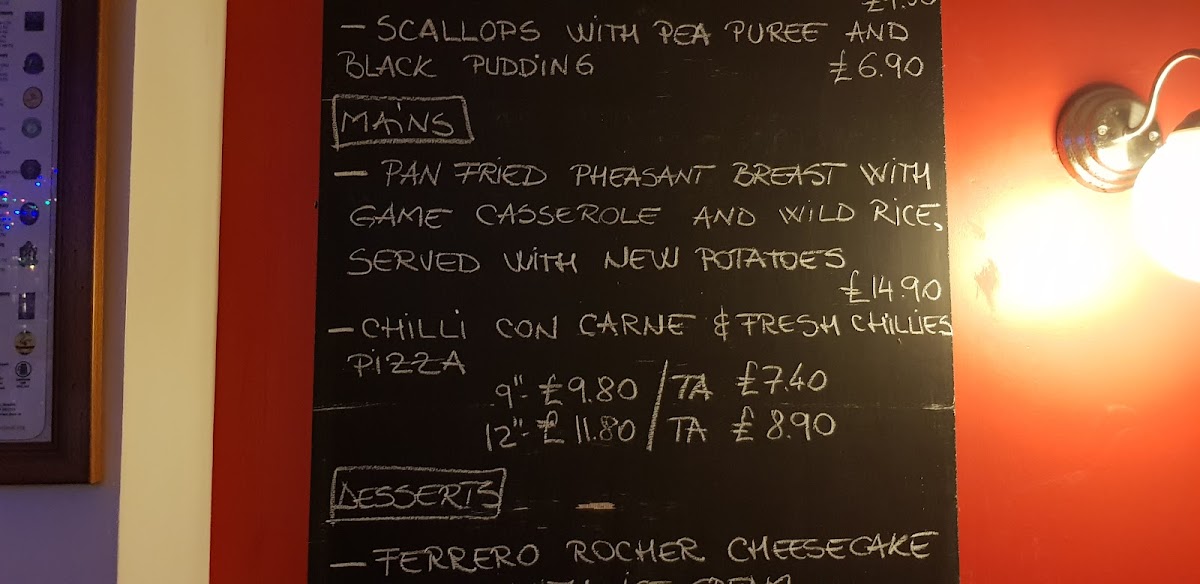 - SCALLOPS WITH PEA PUREE AND
BLACK PUDDING £6.90
MAINS
- PAN FRIED PHEASANT BREAST WITH
GAME CASSEROLE AND WILD RICE,
SERVED WITH NEW POTATOES
£14.90
- CHILLI CON CARNE & FRESH CHILLIES
PIZZA
9"- £9.80 / TA £7.40
12"- £11.80 / TA £8.90
DESSERTS
- FERRERO ROCHER CHEESECAKE